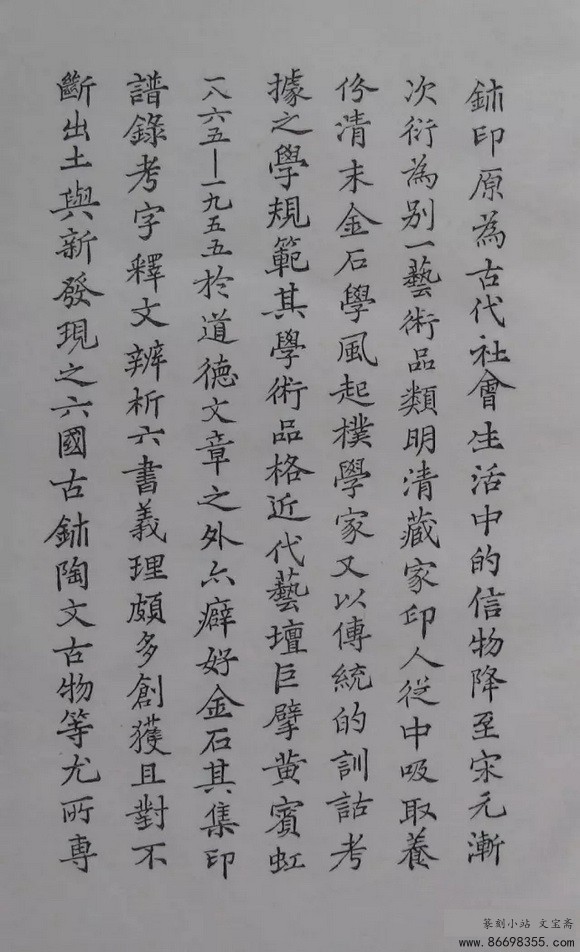 鉨印原為古代社會生活中的信物降至宋元漸
次衍為別一藝術品類明清藏家印人從中吸取養
份清末金石學風起樸學家又以傳統的訓詁考
據之學規範其學術品格近代藝壇巨擘黃賓虹
一八六五—一九五五於道德文章之外亦癖好金石其集印
譜錄考字釋文辨析六書義理頗多創獲且對不
斷出土與新發現之六國古鉨陶文古物等尤所專
篆刻小站 文宝斋
www.86698355.com